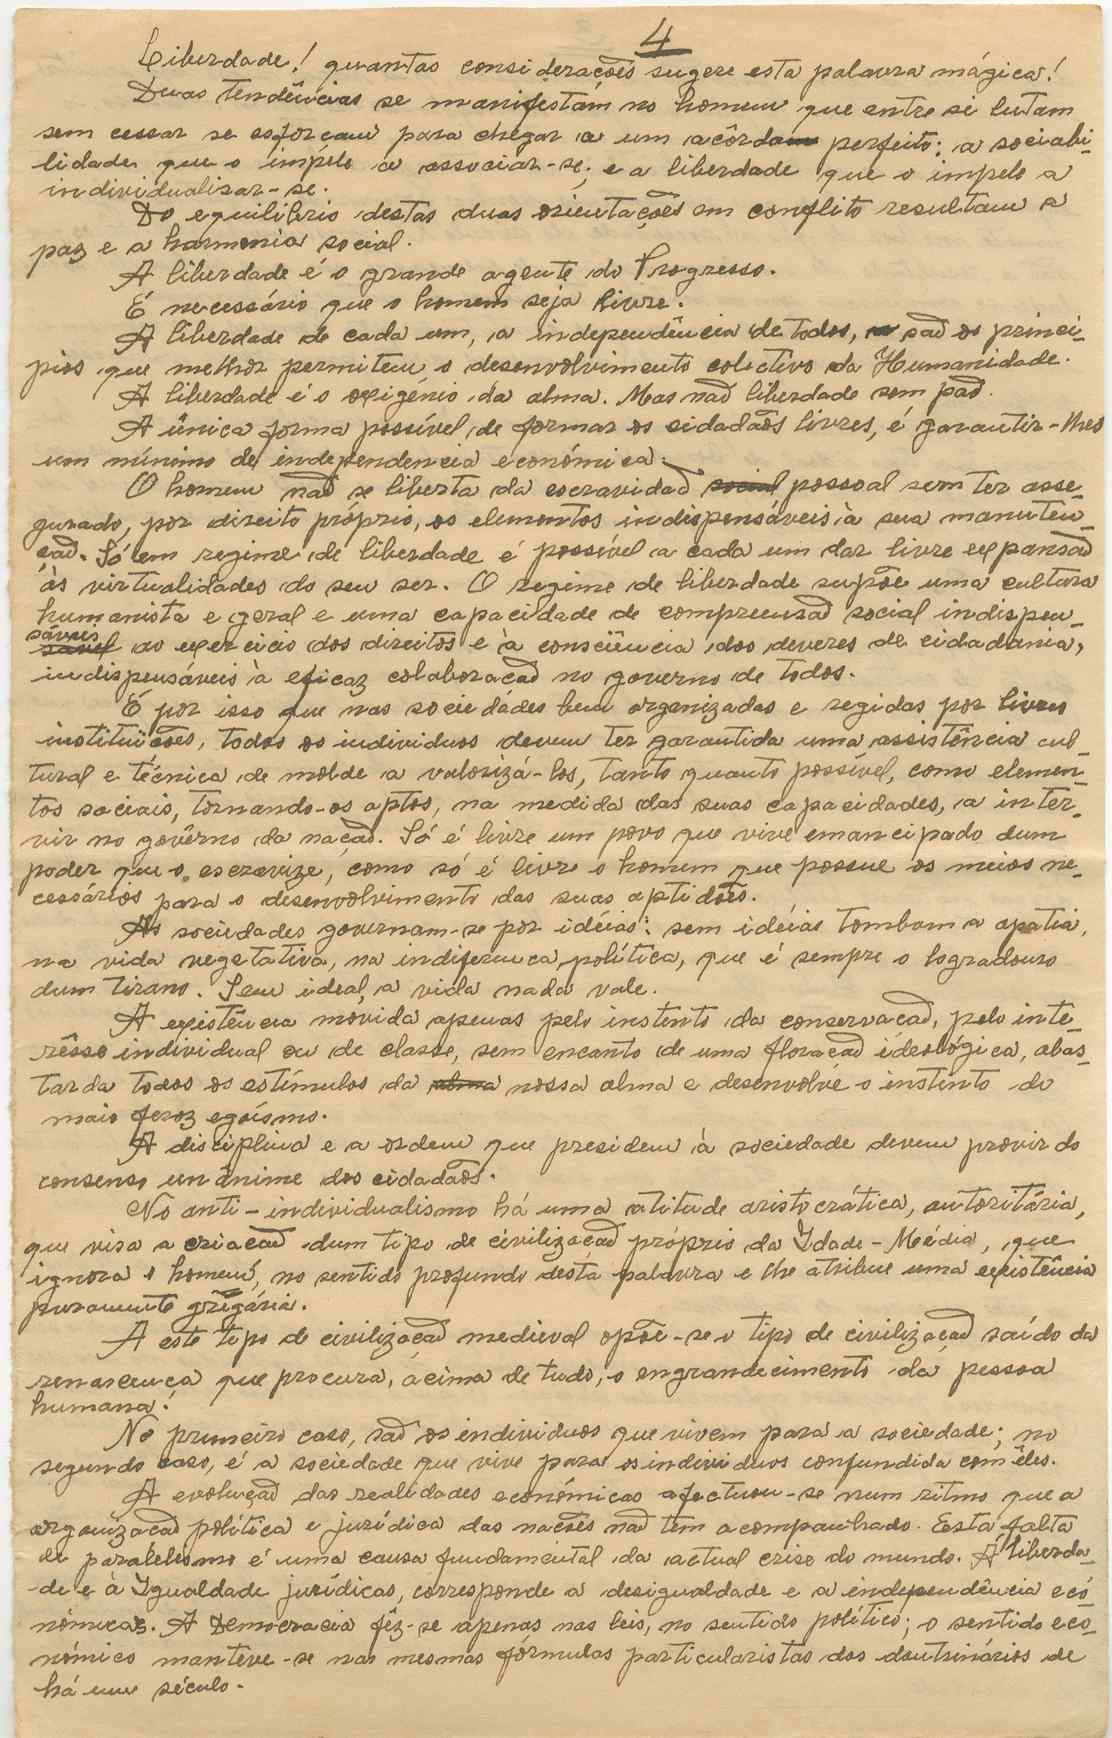 4
Liberdade! quantas considerações sugere esta palavra mágica!
Duas tendências se manifestám no homem que entre si lutam
sem cessar se esforçam para chegar a um acôrdo perfeito: a sociabi-
lidade que o impéle a associar-se; e a liberdade que o impele a
individualizar-se.
Do equilibrio destas duas orientações em conflito resultam a
paz e a harmonia social.
A liberdade é o grande agente do Progresso.
É necessário que o homem seja livre.
A liberdade de cada um, a independência de todos, são os princi-
pios que melhor permitem o desenvolvimento colectivo da Humanidade.
A liberdade é o oxigénio da alma. Mas não liberdade sem pão.
A única forma possível de formar os cidadãos livres, é garantir-lhes
um minimo de independencia económica.
O homem não se liberta da escravidão social pessoal sem ter asse-
gurado, por direito próprio, os elementos indispensáveis à sua manuten-
ção. Só em regime de liberdade é possível a cada um dar livre expansão
às virtualidades do seu ser. O regime de liberdade supõe uma cultura
humanista e geral e uma capacidade de compreensão social indispen-
sáveis
savel ao exercicio dos direitos e à consciência dos deveres de cidadania,
indispensáveis à eficaz colaboração no governo de todos.
É por isso que nas sociedádes bem organizadas e regidas por livres
instituições, todos os individuos devem ter garantida uma assistência cul-
tural e técnica de molde a valorizá-los, tanto quanto possível, como elemen-
tos sociais, tornando-os aptos, na medida das suas capacidades, a inter-
vir no govêrno da nação. Só é livre um povo que vive emancipado dum
poder que o escravize, como só é livre o homem que possue os meios ne-
cessários para o desenvolvimento das suas aptidões.
As sociedades governam-se por idéias: sem idéias tombam a apatia,
na vida vegetativa, na indiferença política, que é sempre o logradouro
dum tirano. Sem ideal, a vida nada vale.
A existência movida apenas pelo instinto da conservação, pelo inte-
rêsse individual ou de classe, sem encanto de uma floração ideológica, abas-
tarda todos os estímulos da alma nossa alma e desenvolve o instinto do
mais feroz egoísmo.
A disciplina e a ordem que presidem à sociedade devem provir do
consenso unânime dos cidadãos.
No anti-individualismo há uma atitude aristocrática, autoritária,
que visa a criação dum tipo de civilização próprio da Idade-Média, que
ignora o homem, no sentido profundo desta palavra e lhe atribue uma existência
puramente gregária.
A este tipo de civilização medieval opõe-se o tipo de civilização saído da
renascença que procura, ácima de tudo, o engrandecimento da pessoa
humana!
No primeiro caso, são os individuos que vivem para a sociedade; no
segundo caso, é a sociedade que vive para os individuos confundida com êles.
A evolução das realidades económicas efectuou-se num ritmo que a
organização política e jurídica das nações não tem acompanhado. Esta falta
de paralelismo é uma causa fundamental da actual crise do mundo. Á liberda-
de e à Igualdade jurídicas, corresponde a desigualdade e a independência eco-
nómicas. A Democracia fêz-se apenas nas leis, no sentido político; o sentido eco-
nómico manteve-se nas mesmas fórmulas particularistas dos doutrinários de
há um século.